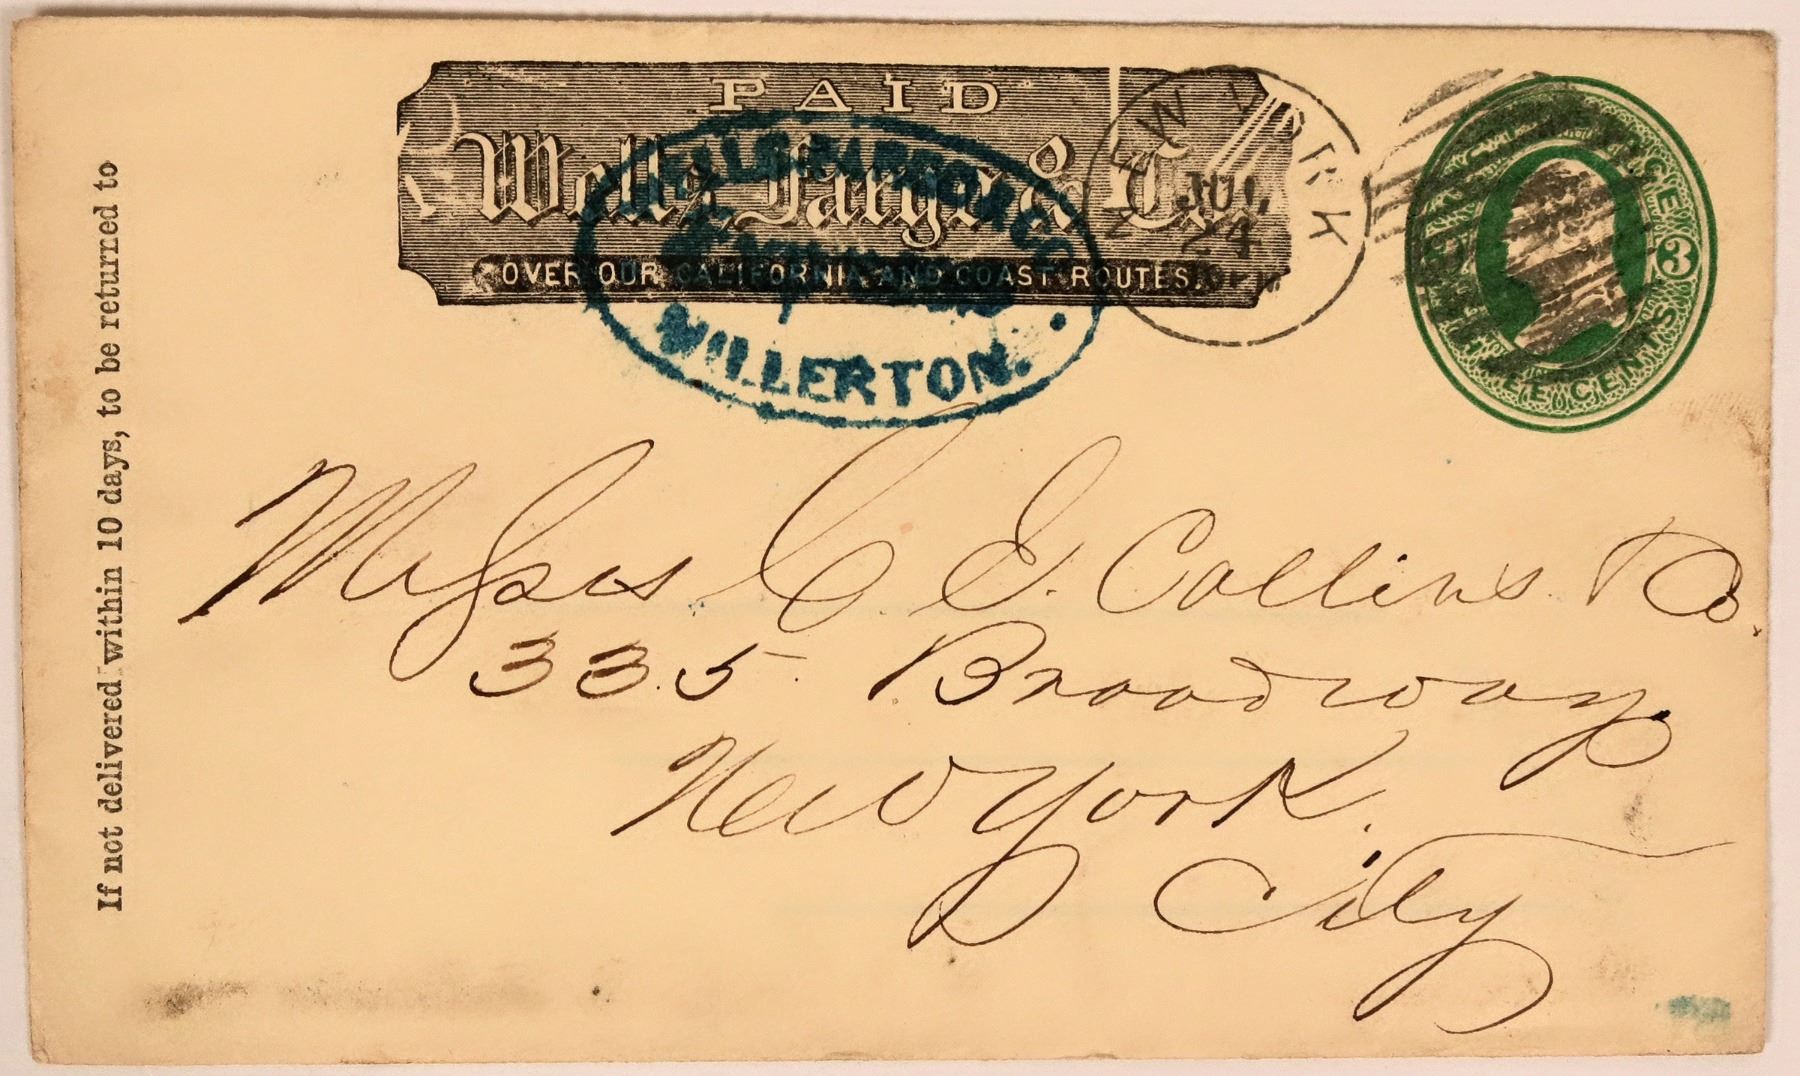 PAID
Wells, Fargo & Co.
OVER OUR CALIFORNIA AND COAST ROUTES.
WELLS, FARGO & CO.
MILLERTON.
NEW YORK
JUL
24
THREE CENTS
3
If not delivered within 10 days, to be returned to
Messrs C. E. Collins & Co.
335 Broadway
New York
City